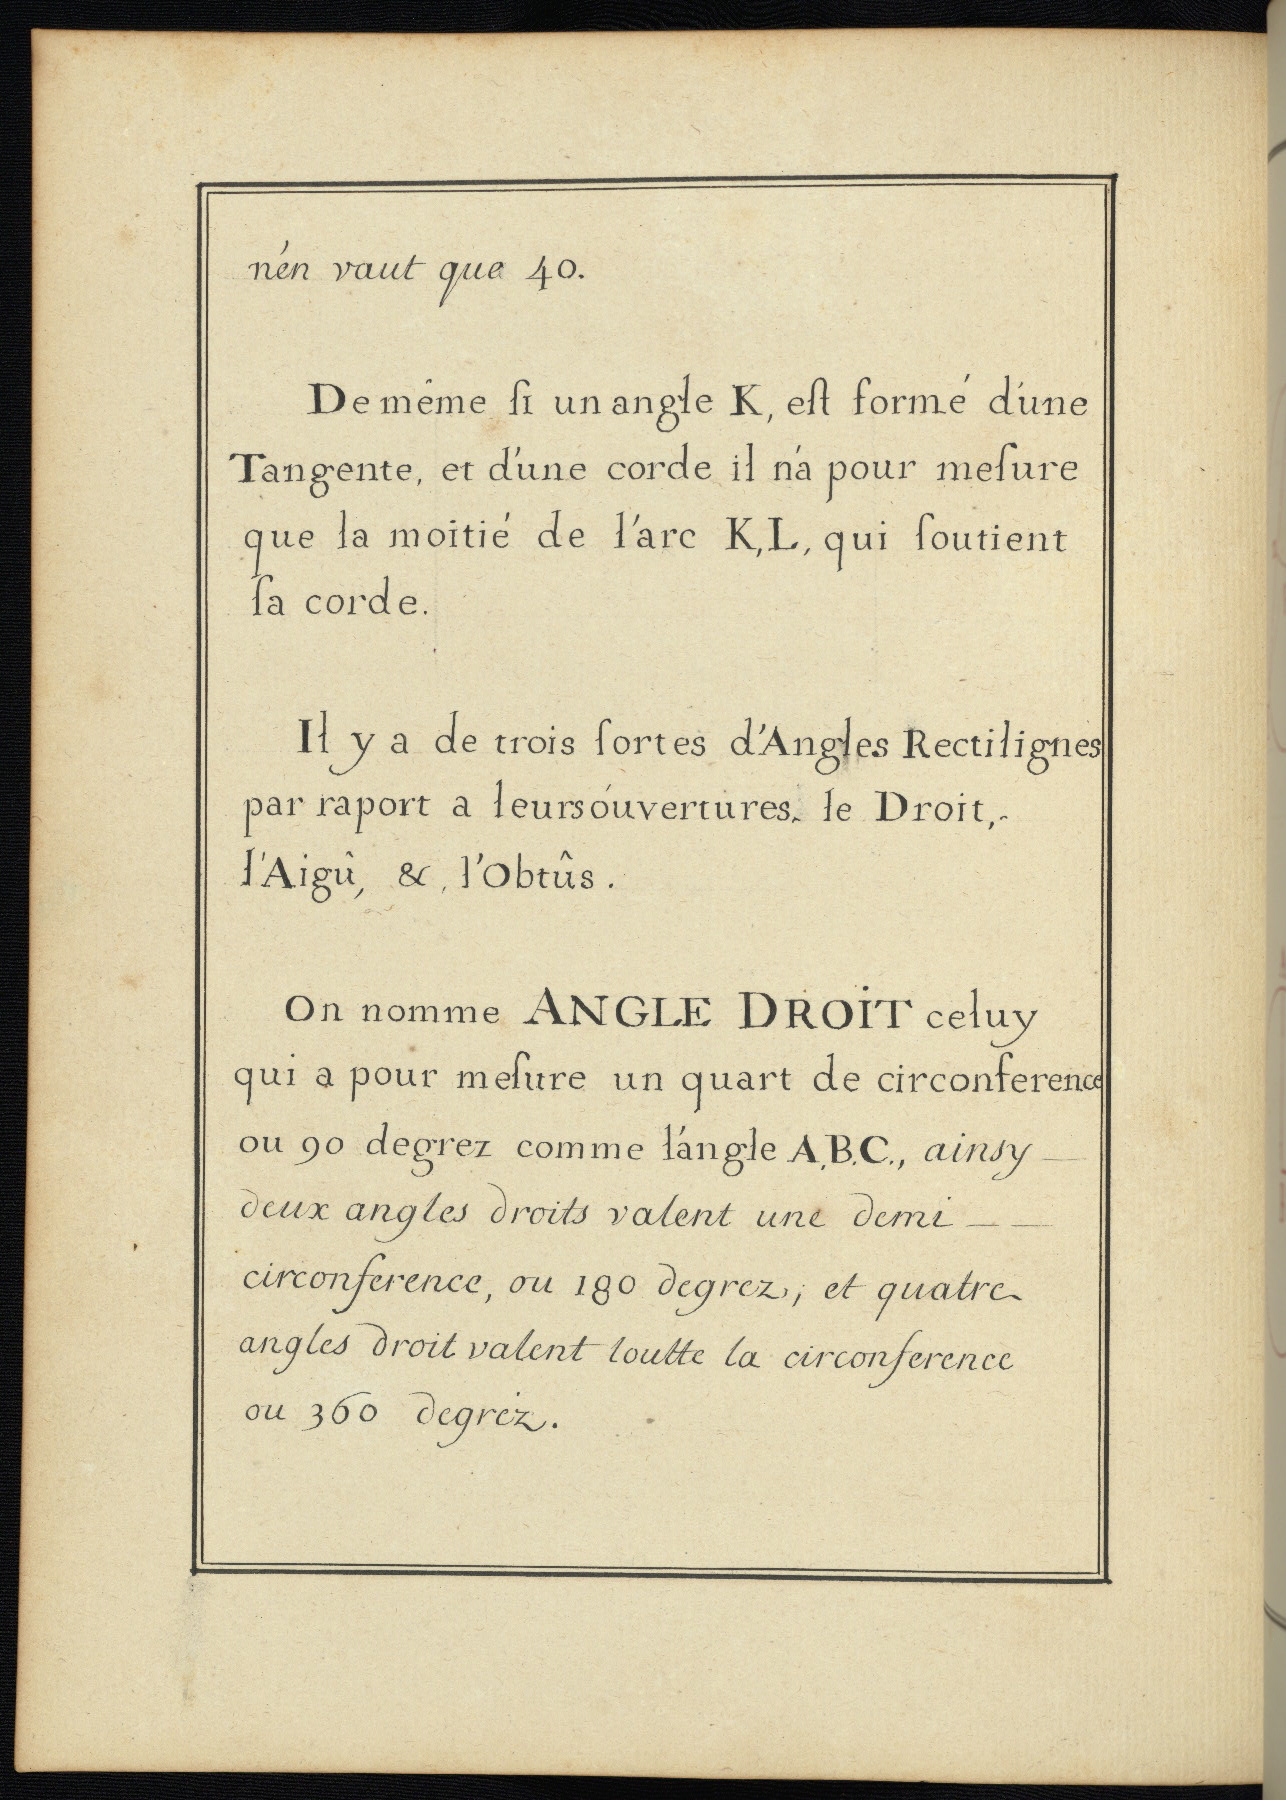 n'én vaut que 40.
De même ſi un angle K, eſt formé d'úne
Tangente, et d'úne corde il n'á pour meſure
que la moitié de l'arc K,L, qui ſoutient
ſa corde.
Il y a de trois ſortes d'Angles Rectilignes
par raport a leurs óuvertures, le Droit,
l'Aigû, &, l'Obtûs.
On nomme ANGLE DROIT celuy
qui a pour meſure un quart de circonference
ou 90 degrez comme l'ángle A,B,C., ainsy
deux angles droits valent une demi
circonference, ou 180 degrez; et quatre
angles droit valent toutte la circonference
ou 360 degrez.